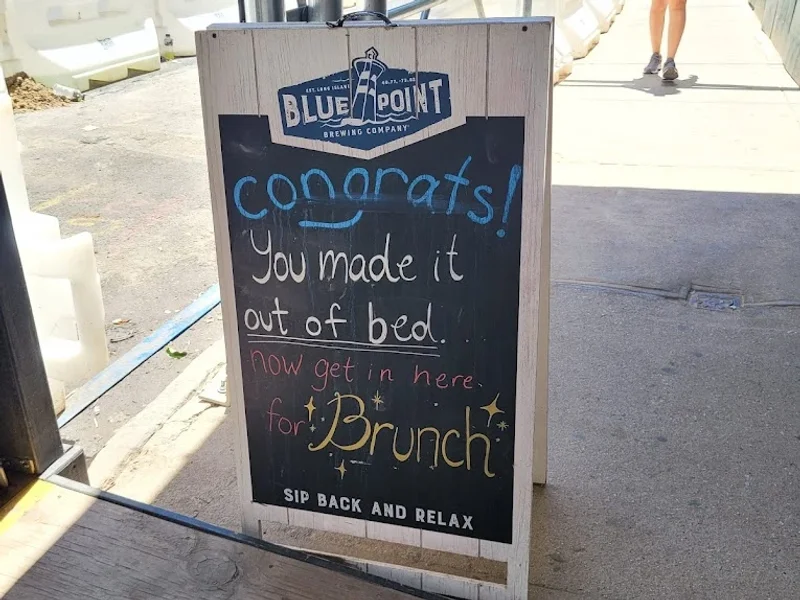 BLUE POINT
BREWING COMPANY
congrats!
You made it
out of bed.
now get in here
for Brunch
SIP BACK AND RELAX